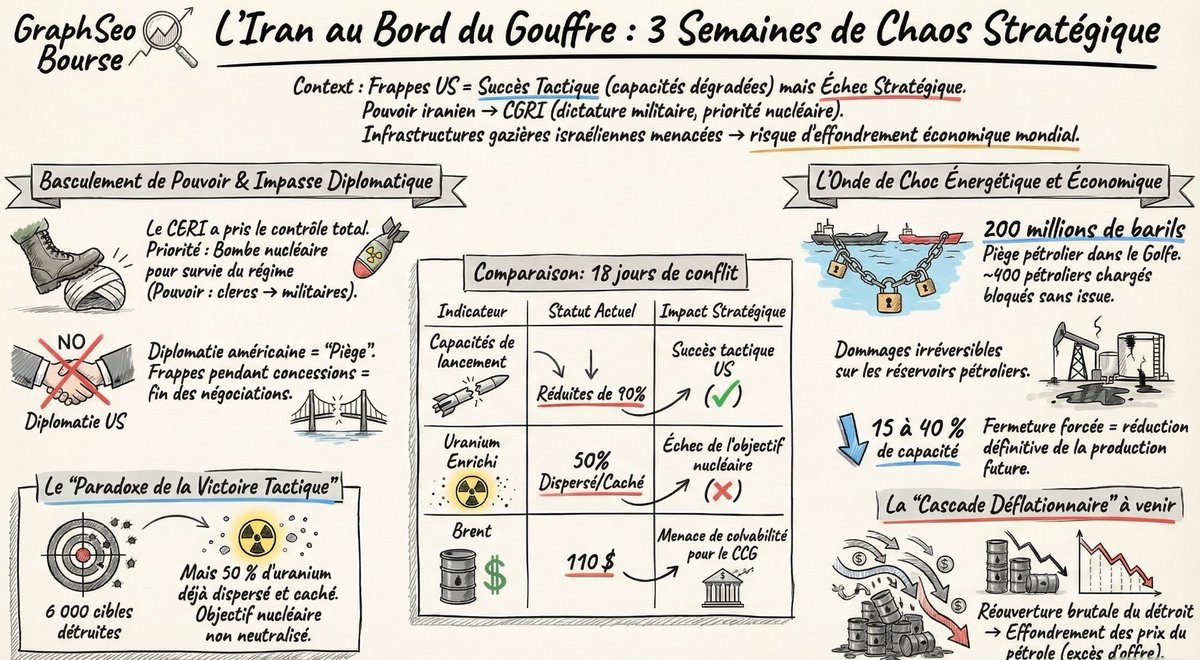 GraphSeo
Bourse
L'Iran au Bord du Gouffre : 3 Semaines de Chaos Stratégique
Context : Frappes US = Succès Tactique (capacités dégradées) mais Échec Stratégique.
Pouvoir iranien → CGRI (dictature militaire, priorité nucléaire).
Infrastructures gazières israéliennes menacées → risque d'effondrement économique mondial.
Basculement de Pouvoir & Impasse Diplomatique
Le CERI a pris le contrôle total.
Priorité : Bombe nucléaire
pour survie du régime
(Pouvoir : clercs → militaires).
NO
Diplomatie US
Diplomatie américaine = "Piège".
Frappes pendant concessions =
fin des négociations.
Le "Paradoxe de la Victoire Tactique"
6 000 cibles
détruites
Mais 50 % d'uranium
déjà dispersé et caché.
Objectif nucléaire
non neutralisé.
Comparaison: 18 jours de conflit
Indicateur
Statut Actuel
Impact Stratégique
Capacités de
lancement
Réduites de 90%
Succès tactique
US
(✓)
Uranium
Enrichi
50%
Dispersé/Caché
Échec de l'objectif
nucléaire
(✗)
Brent
$
110 $
Menace de colvabilité
pour le CCG
$
L'Onde de Choc Énergétique et Économique
200 millions de barils
Piège pétrolier dans le Golfe.
~400 pétroliers chargés
bloqués sans issue.
Dommages irréversibles
sur les réservoirs pétroliers.
15 à 40 %
de capacité
Fermeture forcée = réduction
définitive de la production
future.
La "Cascade Déflationnaire" à venir
$
$
$
Réouverture brutale du détroit
→ Effondrement des prix du
pétrole (excès d'offre).